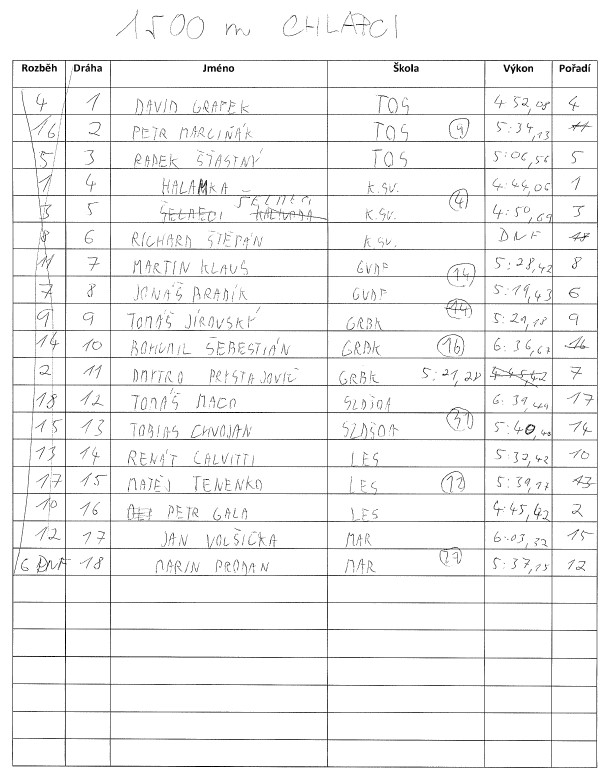 1500 m CHLAPCI
Rozběh Dráha Jméno Škola Výkon Pořadí
4 1 DAVID GRAPEK TOS 4 52,08 4
16 2 PETR MARCIŇÁK TOS 9 5:34,13 11
5 3 RADEK ŠŤASTNÝ TOS 5:06,56 5
1 4 HALAMKA K.SV. 4:44,06 1
3 5 K.SV. 4 4:50,69 3
8 6 RICHARD ŠTĚPÁN K.SV. DNF 18
11 7 MARTIN KLAUS GVDP 5:28,42 8
7 8 JONÁŠ BRADÍK GVDP 14 5:19,43 6
9 9 TOMÁŠ JÍROVSKÝ GRBK 44 5:29,18 9
14 10 BOHUMIL ŠEBESTIÁN GRBK 16 6:36,67 16
2 11 DMYTRO GRBK 5:21,28 4 45,42 7
18 12 TOMÁŠ MACO 6:39,49 17
15 13 TOBIAS CHVOJAN 31 5:40, 14
13 14 RENÁT CALVITTI LES 5:32,42 10
17 15 MATĚJ TENENKO LES 5:39,17 13
10 16 PETR GALA LES 4:45,42 2
12 17 JAN VOLŠIČKA MAR 6:03,32 15
6 DNF 18 MARIN PRODAN MAR 27 5:37,15 12